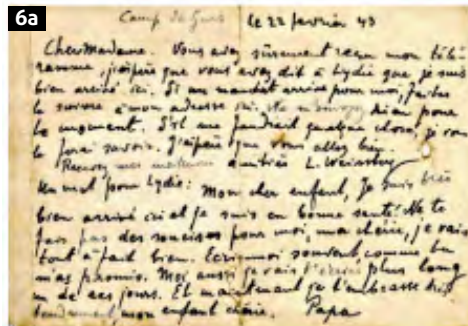 6a
Camp de Gurs le 22 février 43
Chère Madame. Vous avez sûrement reçu mon télé-
gramme, j'espère que vous avez dit à Lydie que je suis
bien arrivé ici. Si un mandat arrive pour moi, faites
le suivre à mon adresse ici. Ne m'envoyez rien pour
le moment. S'il me faudrait quelque chose, je vous
le ferai savoir. J'espère que vous allez bien.
Recevez mes meilleures amitiés L. Weissberg
Un mot pour Lydie: Mon cher enfant, Je suis très
bien arrivé ici et je suis en bonne santé. Ne te
fais pas des soucises pour moi, ma chérie, je vais
tout à fait bien. Ecris-moi souvent, comme tu
m'as promis. Moi aussi je vais t'écrire plus long
un de ces jours. Et maintenant je t'embrasse très
tendrement, mon enfant chérie. Papa